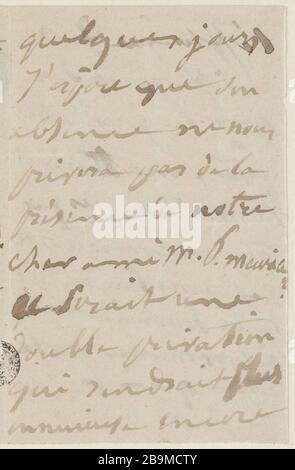 quelques jours
J'espère que son
absence ne nous
privera pas de la
présence de notre
cher ami M. P. Meurice
ce serait une
double privation
qui rendrait plus
ennuieuse encore
alamy
Image ID: 2B9MCTY
www.alamy.com